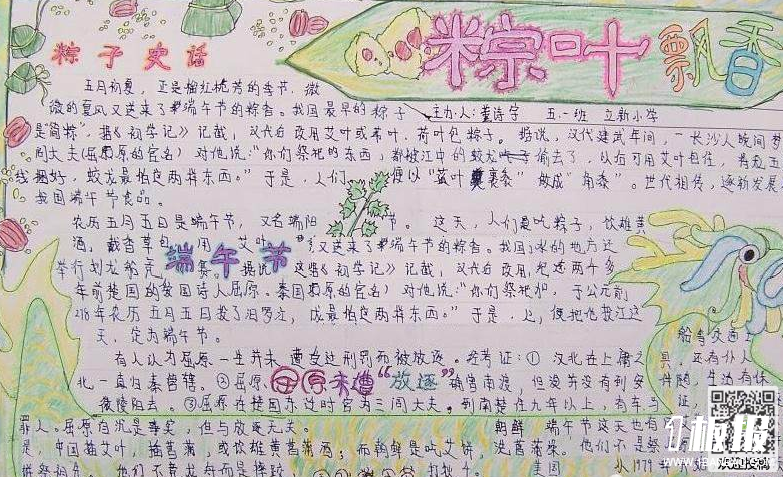 粽叶飘香
粽子史话
五月初夏，正是榴红桃芳的季节，微
微的夏风又送来了端午节的粽香。我国最早的粽子
主办人：董诗宇 五·一班 立新小学
是“筒粽”，据《初学记》记载，汉代后改用艾叶或苇叶、荷叶包粽子。据说，汉代建武年间，一长沙人晚间梦
间大夫(屈原的官名)对他说：“你们祭祀的东西，都被江中的蛟龙偷去了，以后可用艾叶包住，将五
线捆好，蛟龙最怕这两样东西。”于是，人们便以“菰叶裹黍”做成“角黍”。世代相传，逐渐发展
我国端午节食品。
农历五月五日是端午节，又名端阳节。这天，人们是吃粽子，饮雄黄
酒，戴香草包，用艾叶 又送来了端午节的粽香。我国 的地方还
端午节
举行划龙船竞赛。据说，这 《初学记》记载，汉代后改用 两千多
年前楚国的爱国诗人屈原。 (屈原的官名)对他说：“你们祭祀，于公元前
278年农历五月五日投了汨罗江， 最怕这两样东西。”于是， 便把他投江这
天，定为端午节。
有人认为屈原一生并未遭受过刑罚而被放逐。经考证：①汉北在上庸之
北，一直归秦管辖。②屈原 确曾南渡，但没并没有到安
屈原未遭“放逐”
徽陵阳去。③屈原在楚国东迁时官为三闾大夫，到南楚住九年以上，有车马
船只交通工
具，还有仆人
伴随，生活有保
证，
罪人。屈原自沉是事实，但与放逐无关。
朝鲜 端午节这天也有
是，中国插艾叶，插菖蒲，或饮雄黄菖蒲酒；而朝鲜是吃艾饼，洗菖蒲澡。他们不是祭
拜祭祖先。他们不赛龙舟而是摔跤，
美国 从1979年
板报